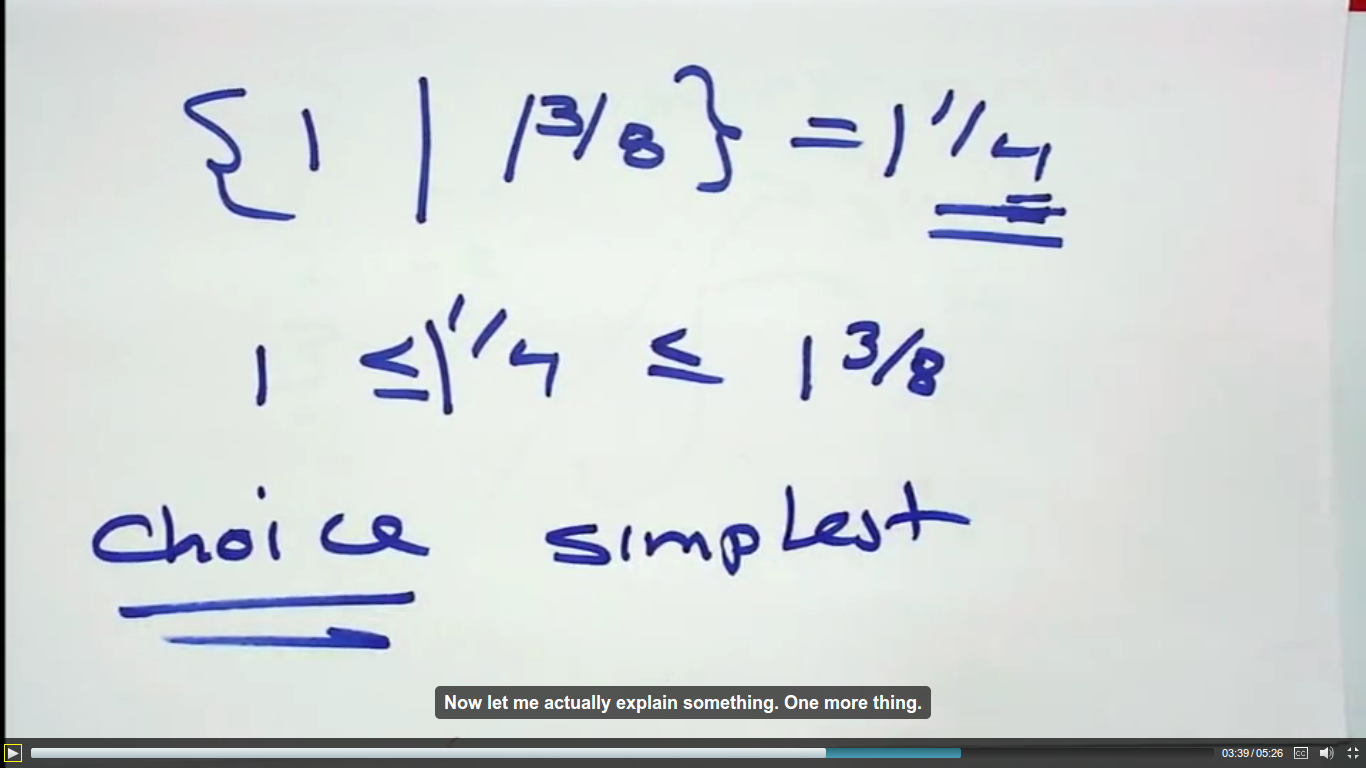 { 1 | 1 3/8 } = 1 1/4
1 ≤ 1 1/4 ≤ 1 3/8
Choice simplest
Now let me actually explain something. One more thing.
03:39/05:26 CC